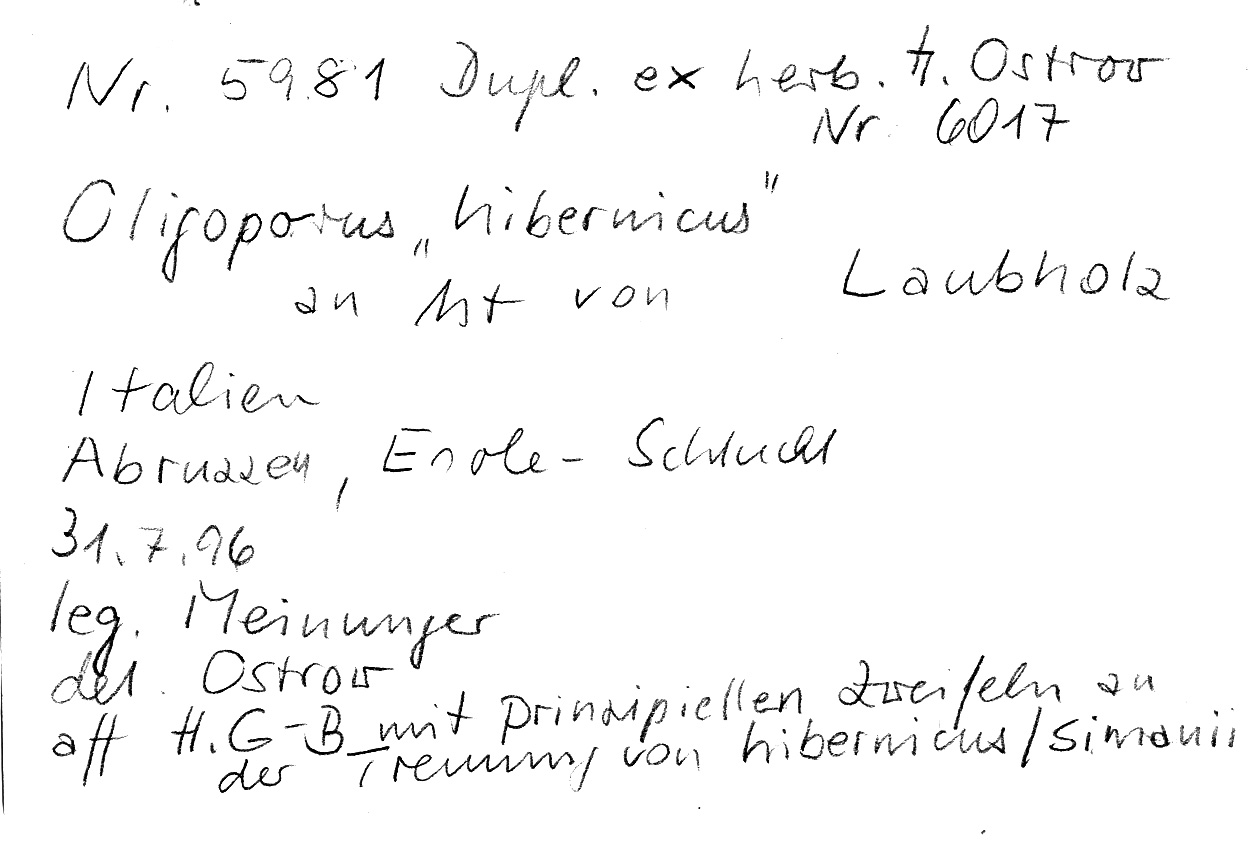 Nr. 5981 Dupl. ex herb. H. Ostrow
Nr. 6017
Oligoporus „hibernicus"
an Ast von Laubholz
Italien
Abruzzen, Schlucht
31.7.96
leg. Meinunger
det. Ostrow
aff H.G-B mit prinzipiellen Zweifeln an
der Trennung von hibernicus/simanii